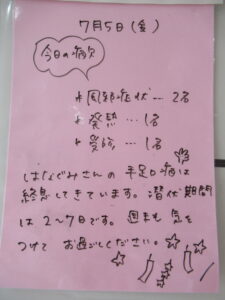 7月5日(金)
今日の病欠
*風邪症状…2名
*発熱…1名
*受診…1名
はなぐみさんの手足口病は
終息してきています。潜伏期間
は2〜7日です。週末も気を
つけてお過ごしください。